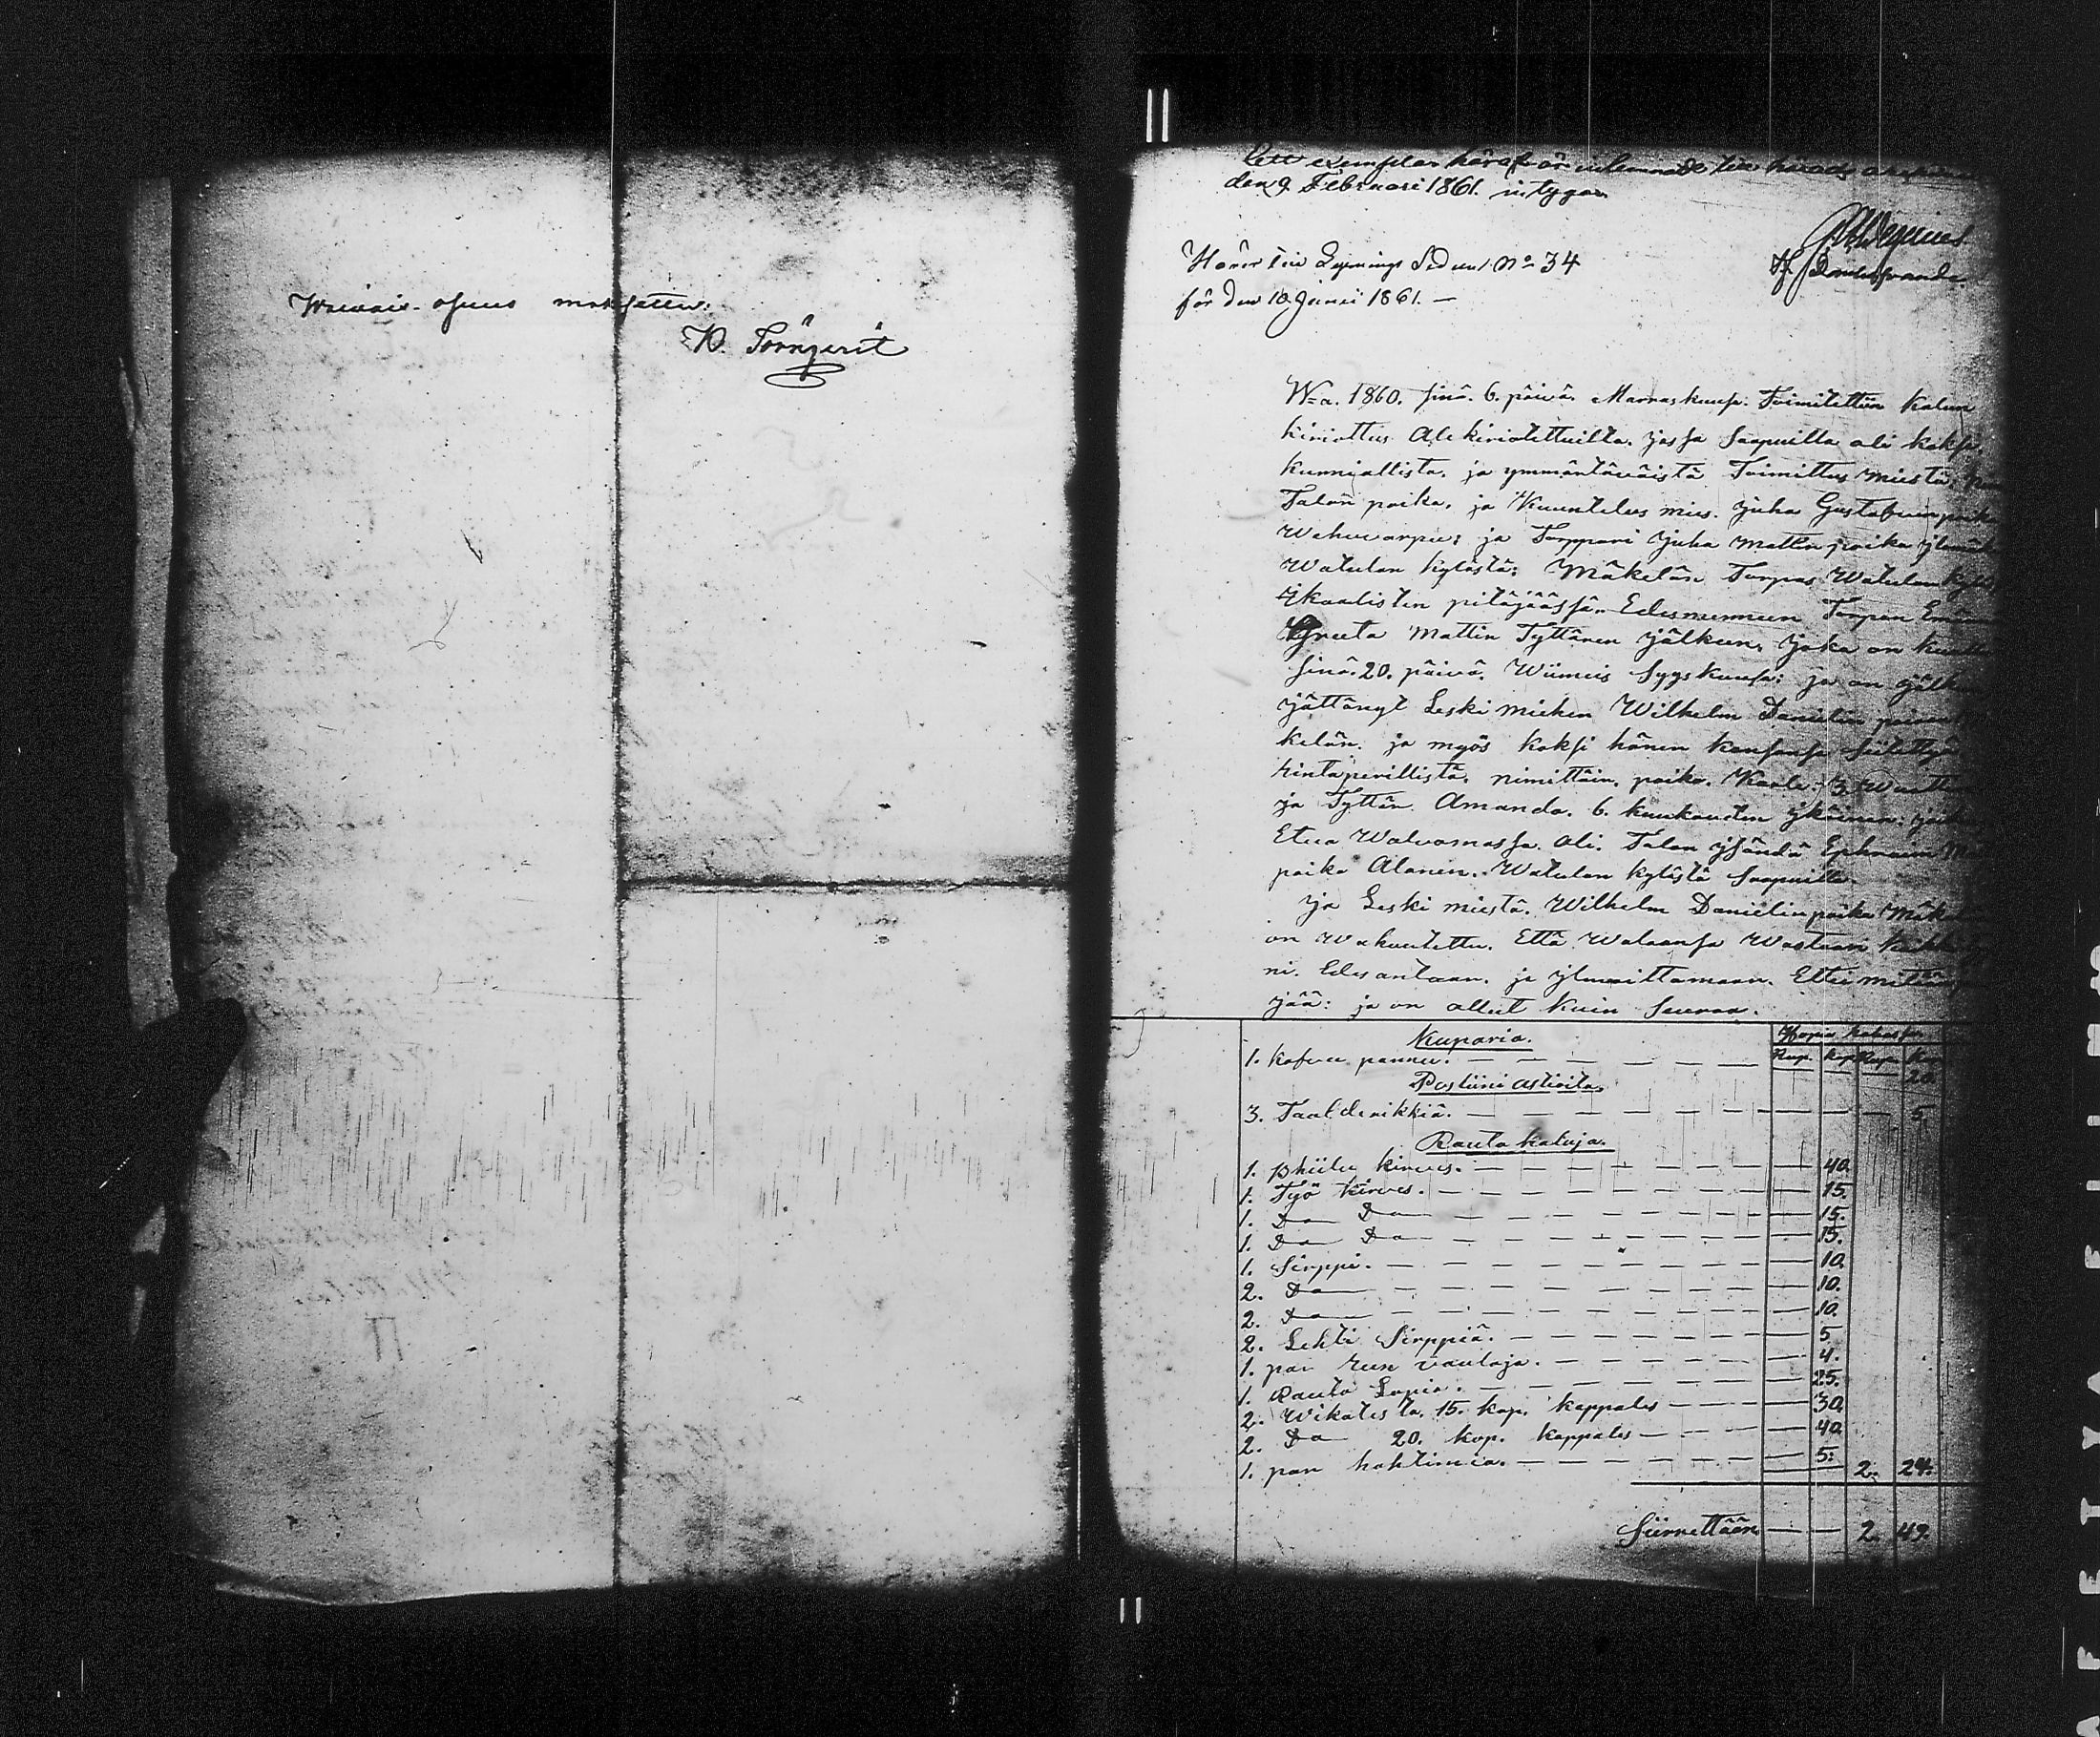 Waivais-osuus maksettu:
K. Törnqvist
Ett exemplar häraf är inlemnadt till härads
den 9 Februari 1861. intygar
Hörer till Lysnings Sedeln No 34
för den 10 Junii 1861. —
W=a. 1860. sinä. 6. päivä. Marraskuusa. Toimitettiin Kalun
kiriottus Alekiriotettuilta. jossa Saapuilla oli kaksi.
kunniallista. ja ymmäntäväistä Toimittus miestä.
Talon poika. ja Kuuntelus mies. Juha Gustafvin poika
Wehuvarpee; ja Torppari Juha Mattin poika
Watulan kylästä; Mäkelän Torpas Watulan kyläs
Ikaalisten pitäjäässä. Edesmennen Torpan
Greeta Mattin Tyttären jälkeen, joka on
sinä. 20. päivä. Wiimeis Syyskuusa: ja on
jättänyt Leski miehen Wilhelm Danielin
kelän. ja myös kaksi hänen kansansa
rintaperillistä. nimittäin. poika. Kaale. 3.
ja Tyttän Amanda. 6. kuukauden ykäinen:
Etua Walvomassa. oli. Talon ysändä Ephraim
poika Alanen. Watulan kylästä Saapuilla.
Ja Leski miestä. Wilhelm Danielin poika
on Wakuutettu. Että Walaansa Wastaan
ni. Edesantaan. ja ylmoittamaan. Ettei mitän
jää: ja on ollut kuin seuraa.
Kuparia. Hopia rahasa.
Rup. kop Rup. Kop
1. kafvee pannu. — — — — — — 20.
Postiini astioita.
3. Taaldrikkiä. — — — — — — 5.
Rauta kaluja.
1. Phiilu kirves. — — — — — — 40.
1. Työ kirves. — — — — — — 15.
1. Do Do — — — — — — 15.
1. Do Do — — — — — — 15.
1. Sirppi. — — — — — — 10.
2. Do — — — — — — 10.
2. Do — — — — — — 10.
2. Lehti Sirppiä. — — — — — — 5.
1. par reen rautoja. — — — — — 4.
1. Rauta Lapio. — — — — — — 25.
2. Wikatesta. 15. kop. kappales — — — 30.
2. Do 20. kop. kappales — — — 40.
1. par hohtimia. — — — — — 5. 2. 24.
Siirrettään — — 2. 49.